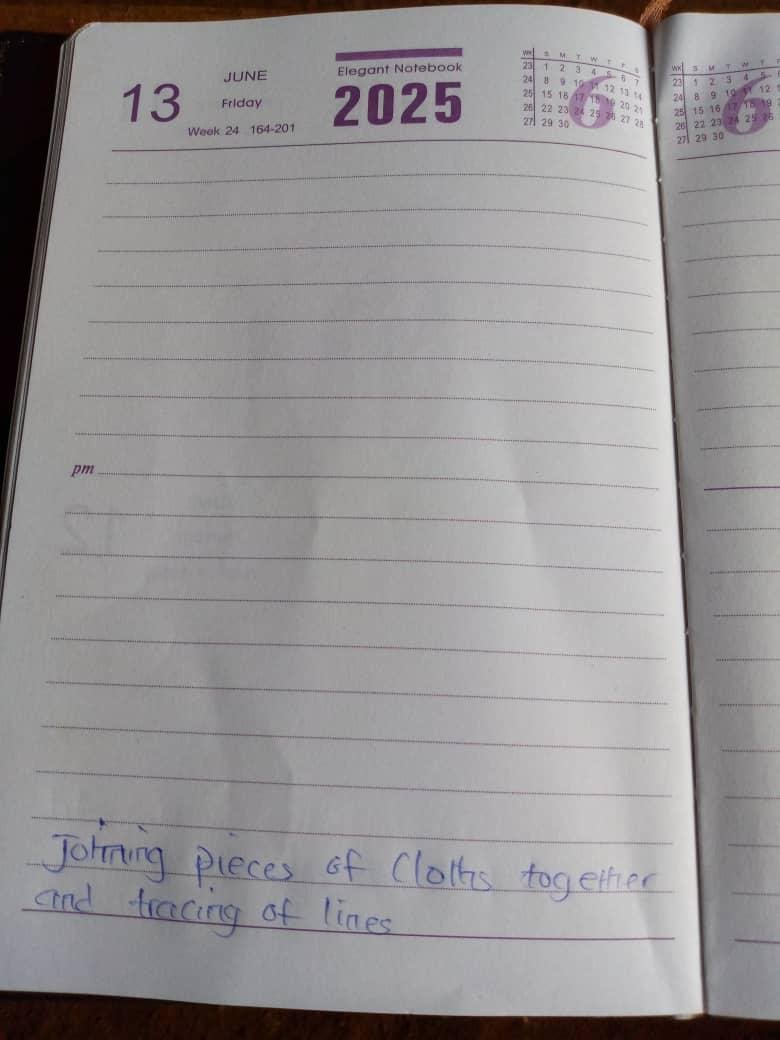 13
JUNE
Friday
Week 24 164-201
Elegant Notebook
2025
WK S M T W T F S
23 1 2 3 4 5 6 7
24 8 9 10 11 12 13 14
25 15 16 17 18 19 20 21
26 22 23 24 25 26 27 28
27 29 30
6
pm
Joining pieces of Cloths together
and tracing of lines
WK S M T W T
23 1 2 3 4 5
24 8 9 10 11 12
25 15 16 17 18 19
26 22 23 24 25 26
27 29 30
6